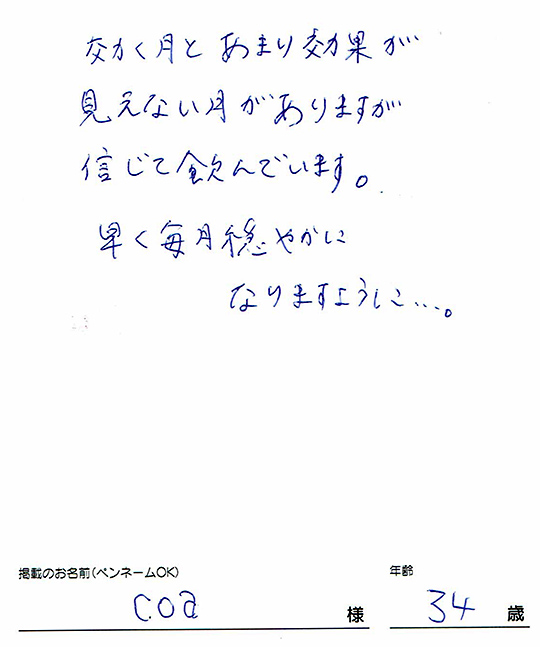 効く月とあまり効果が
見えない月がありますが
信じて飲んでいます。
早く毎月穏やかに
なりますように…。
掲載のお名前(ペンネームOK)
coa 様
年齢
34 歳